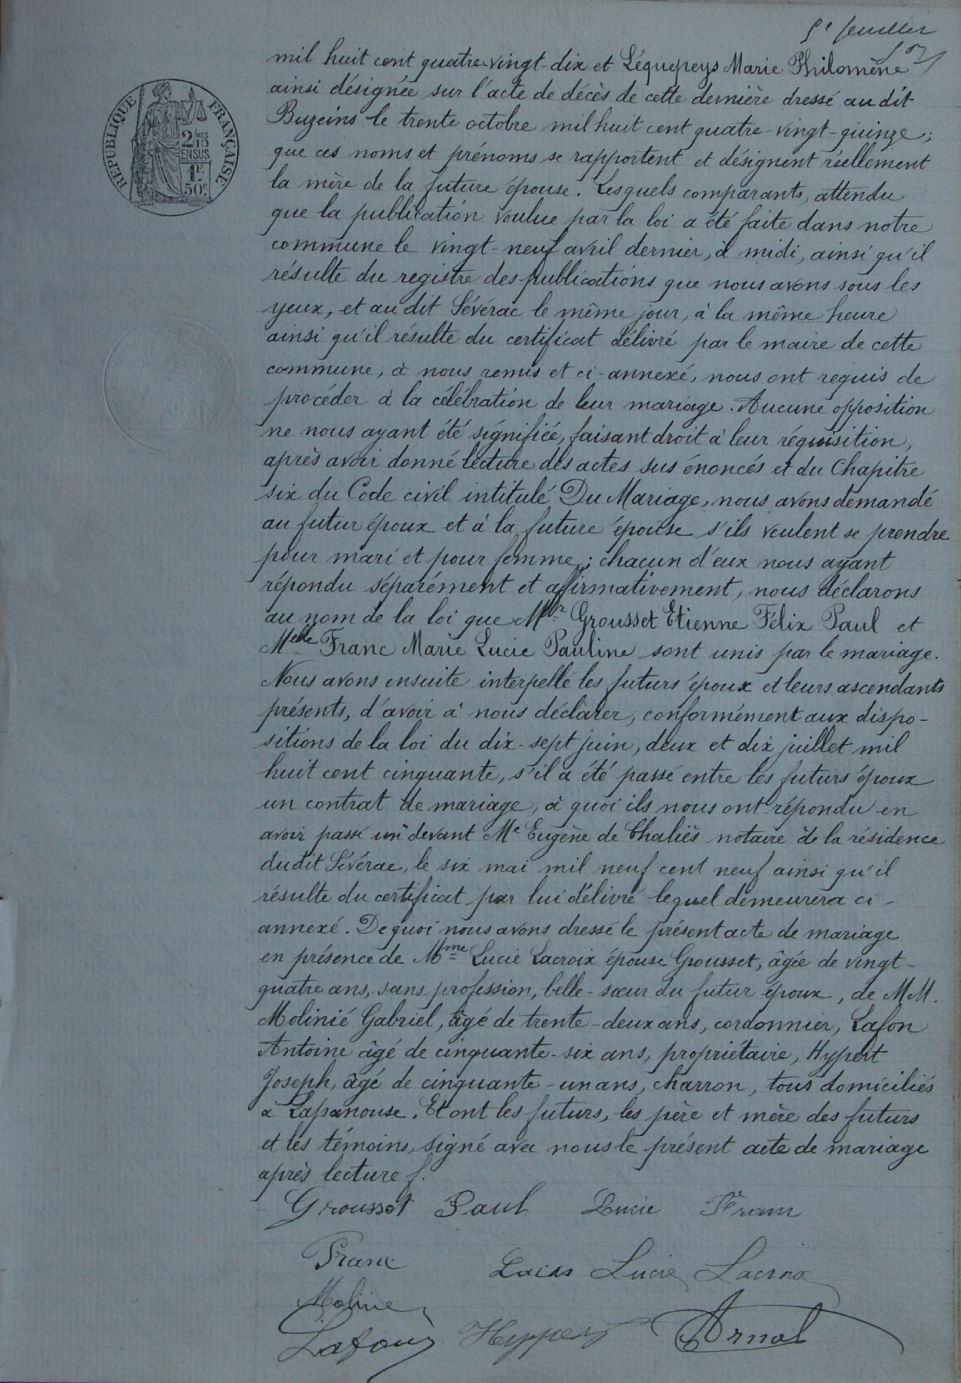 5e feuillet
mil huit cent quatre-vingt-dix et Léquepeys Marie Philomène
ainsi désignée sur l'acte de décès de cette dernière dressé au dit
Buzeins le trente octobre mil huit cent quatre-vingt-quinze;
que ces noms et prénoms se rapportent et désignent réellement
la mère de la future épouse. Lesquels comparants, attendu
que la publication voulue par la loi a été faite dans notre
commune le vingt-neuf avril dernier, à midi, ainsi qu'il
résulte du registre des publications que nous avons sous les
yeux, et au dit Sévérac le même jour, à la même heure
ainsi qu'il résulte du certificat délivré par le maire de cette
commune, à nous remis et ci-annexé, nous ont requis de
procéder à la célébration de leur mariage. Aucune opposition
ne nous ayant été signifiée, faisant droit à leur réquisition,
après avoir donné lecture des actes sus énoncés et du Chapitre
six du Code civil intitulé Du Mariage, nous avons demandé
au futur époux et à la future épouse s'ils veulent se prendre
pour mari et pour femme; chacun d'eux nous ayant
répondu séparément et affirmativement, nous déclarons
au nom de la loi que Mr Grousset Etienne Félix Paul et
Melle Franc Marie Lucie Pauline sont unis par le mariage.
Nous avons ensuite interpellé les futurs époux et leurs ascendants
présents, d'avoir à nous déclarer, conformément aux dispo-
sitions de la loi du dix-sept juin, deux et dix juillet mil
huit cent cinquante, s'il a été passé entre les futurs époux
un contrat de mariage, à quoi ils nous ont répondu en
avoir passé un devant Me Eugène de Chaliès notaire à la résidence
dudit Sévérac, le six mai mil neuf cent neuf ainsi qu'il
résulte du certificat par lui délivré lequel demeurera ci-
annexé. De quoi nous avons dressé le présent acte de mariage
en présence de Mme Lucie Lacroix épouse Grousset, âgée de vingt-
quatre ans, sans profession, belle-sœur du futur époux, de MM.
Molinié Gabriel, âgé de trente-deux ans, cordonnier, Lafon
Antoine âgé de cinquante-six ans, propriétaire, Hypert
Joseph, âgé de cinquante-un ans, charron, tous domiciliés
à Lapanouse. Et ont les futurs, les père et mère des futurs
et les témoins, signé avec nous le présent acte de mariage
après lecture f.
RÉPUBLIQUE FRANÇAISE
2/10mes
EN SUS
1F
50c
Grousset Paul Lucie Franc
Franc Lucie Lacroix
Molinié
Lafon Hyppert Arnal